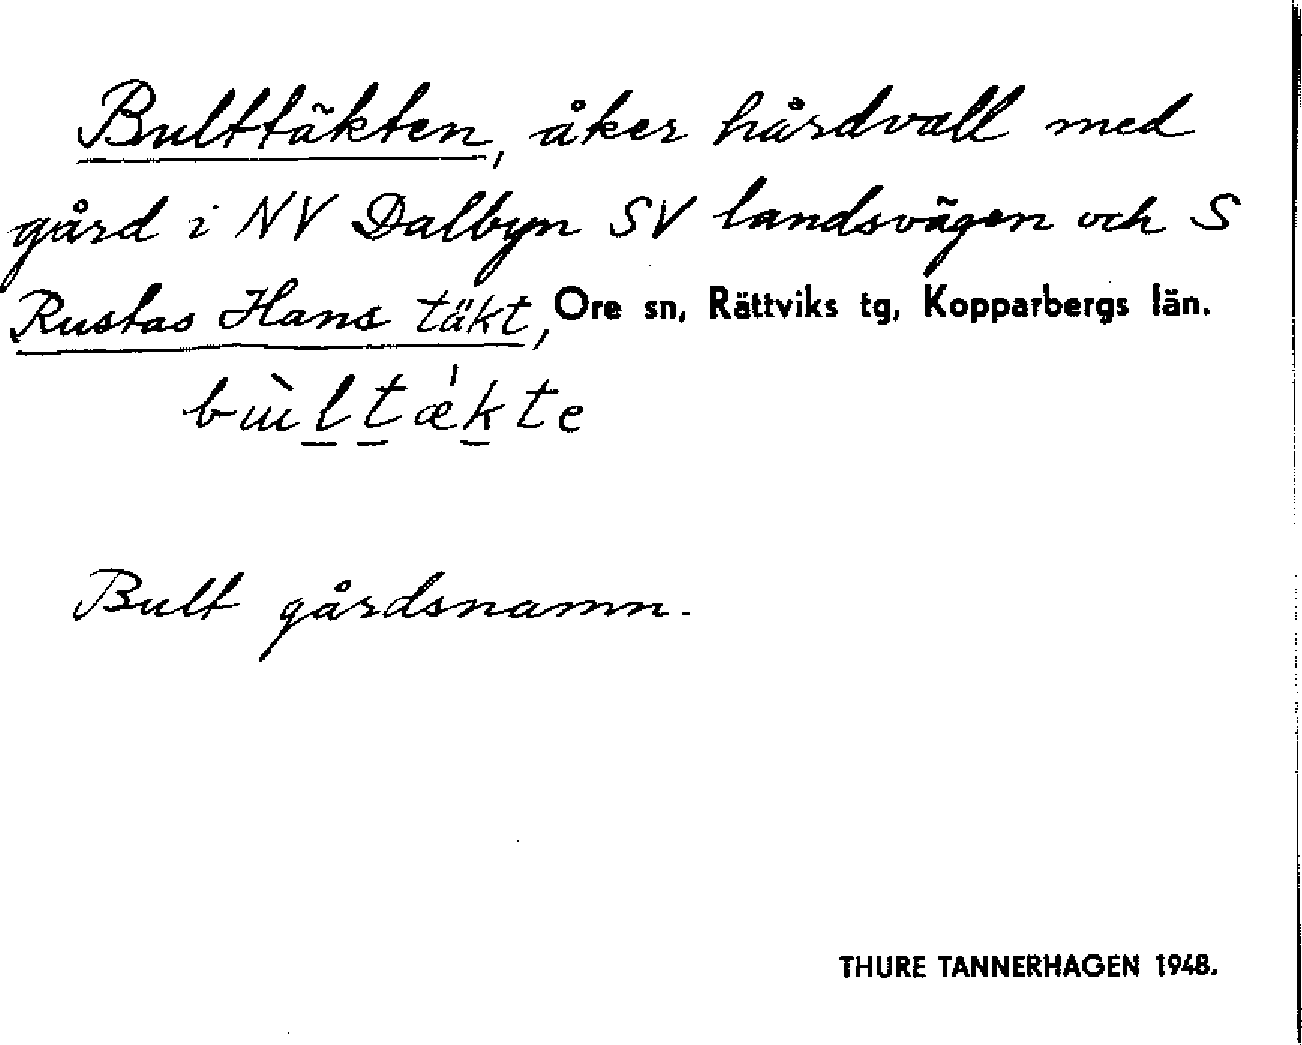 Bulttäkten, åker hårdvall med
gård i NV Dalbyn SV landsvägen och S
Rustas Hans täkt, Ore sn, Rättviks tg, Kopparbergs län.
bùltæ̍kte
Bult gårdsnamn.
THURE TANNERHAGEN 1948.